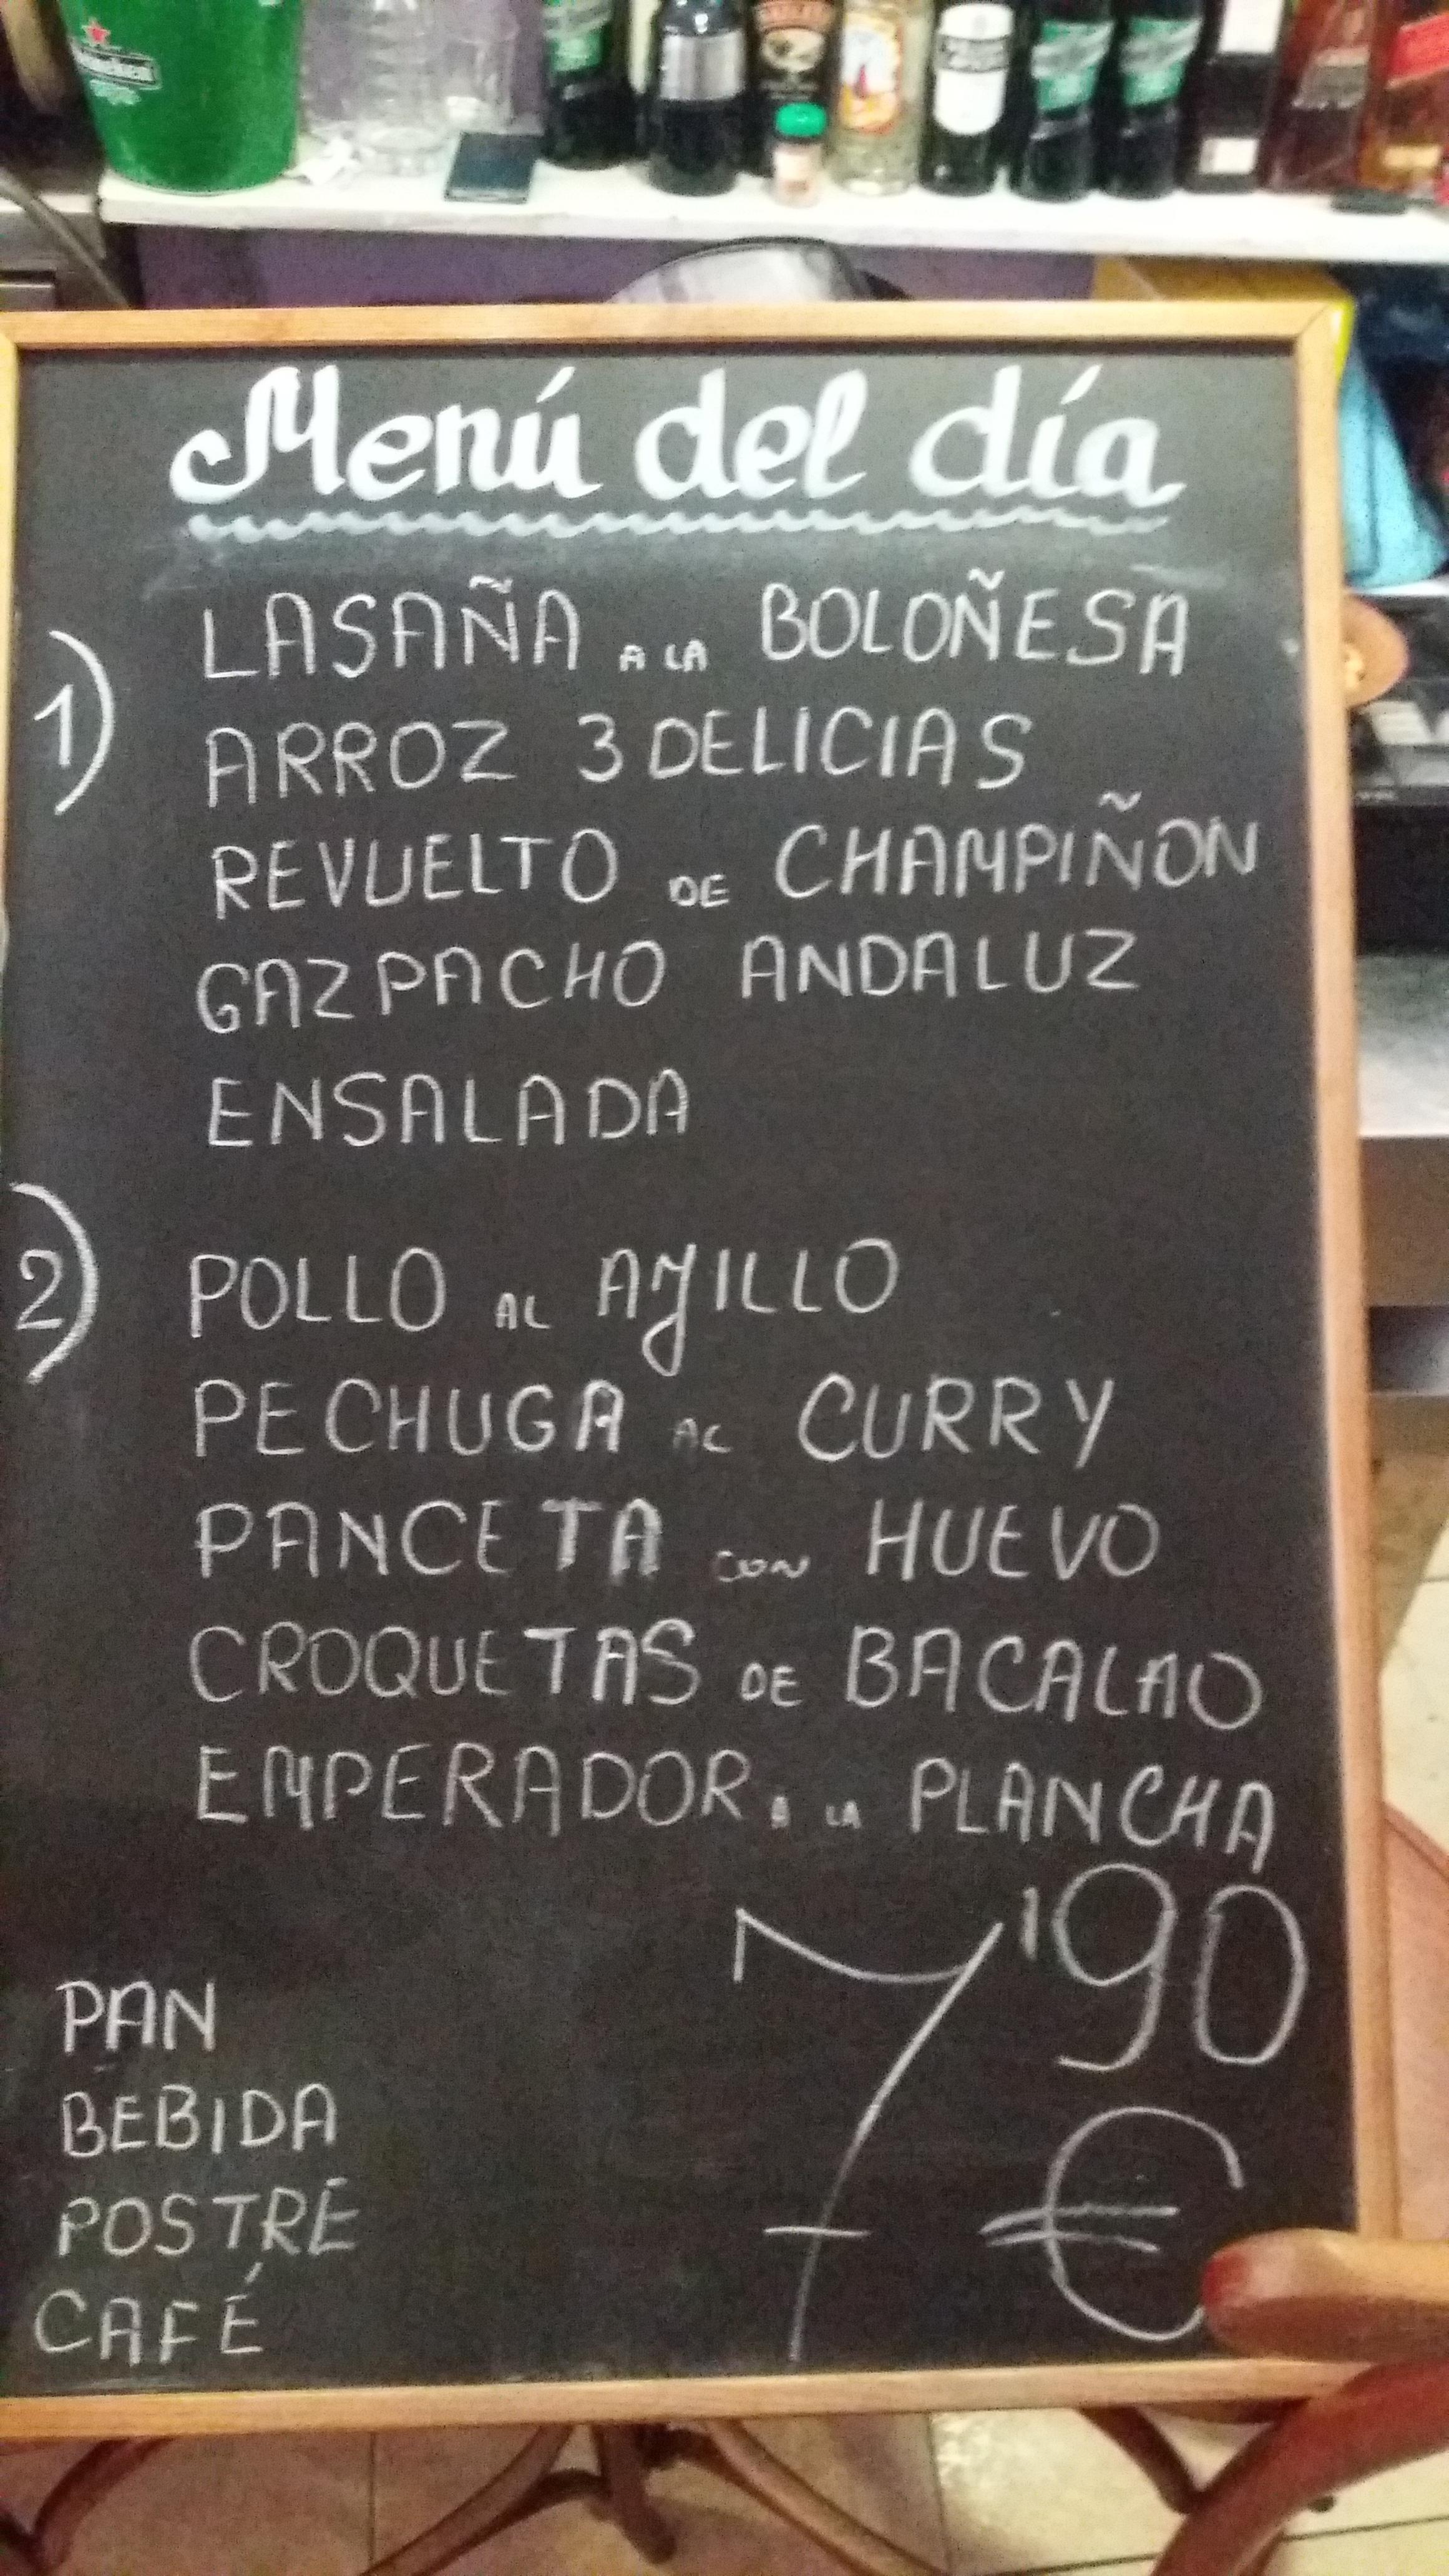 Heineken
Menú del día
1)
LASAÑA A LA BOLOÑESA
ARROZ 3 DELICIAS
REVUELTO DE CHAMPIÑON
GAZPACHO ANDALUZ
ENSALADA
2)
POLLO AL AJILLO
PECHUGA AL CURRY
PANCETA CON HUEVO
CROQUETAS DE BACALAO
EMPERADOR A LA PLANCHA
7'90
€
PAN
BEBIDA
POSTRE
CAFÉ